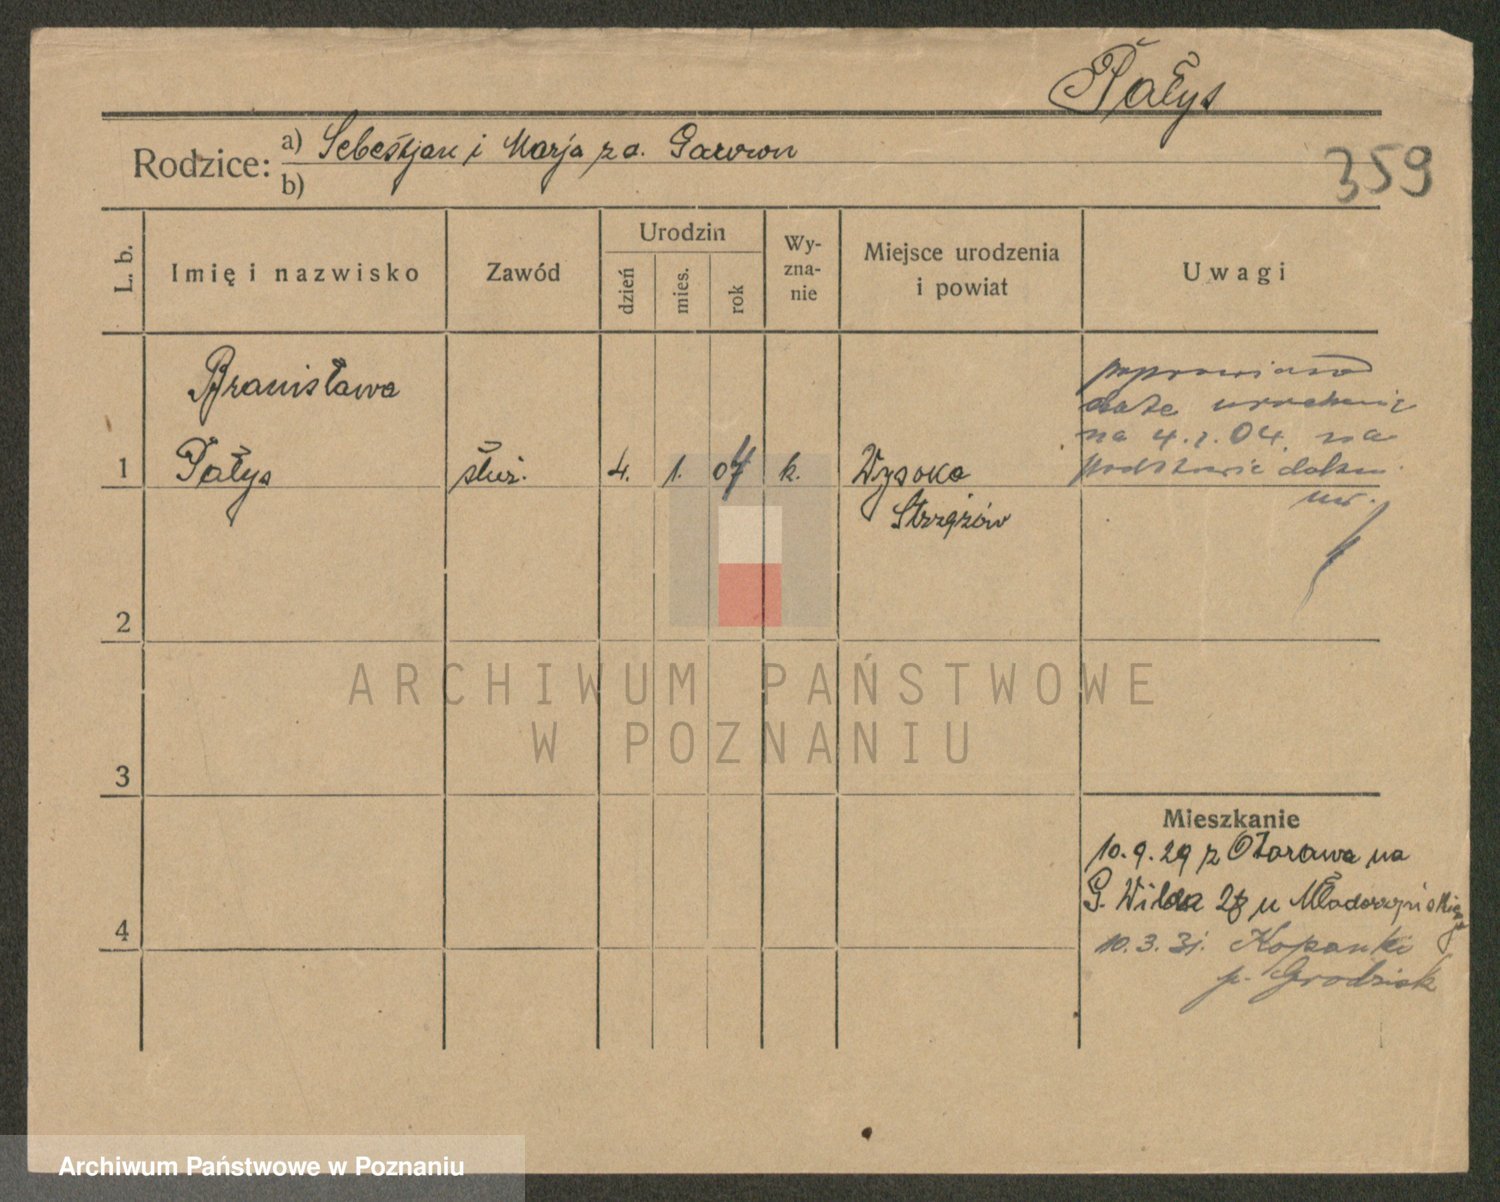 Pałys
Rodzice: a) Sebestjan i Marja z d. Gawron
b)
359
L. b.
Imię i nazwisko
Zawód
Urodzin
dzień
mies.
rok
Wy-
zna-
nie
Miejsce urodzenia
i powiat
Uwagi
Bronisława
1 Pałys służ. 4. 1. 04 k. Wysoka
Strzyżów
poprawiono
datę urodzenia
na 4.1.04 na
podstawie dokum.
ur.
2
3
4
Mieszkanie
10.9.29 z Otorowa na
G. Wilda u
10.3.31. Kopanki
p. Grodzisk
ARCHIWUM PAŃSTWOWE
W POZNANIU
Archiwum Państwowe w Poznaniu